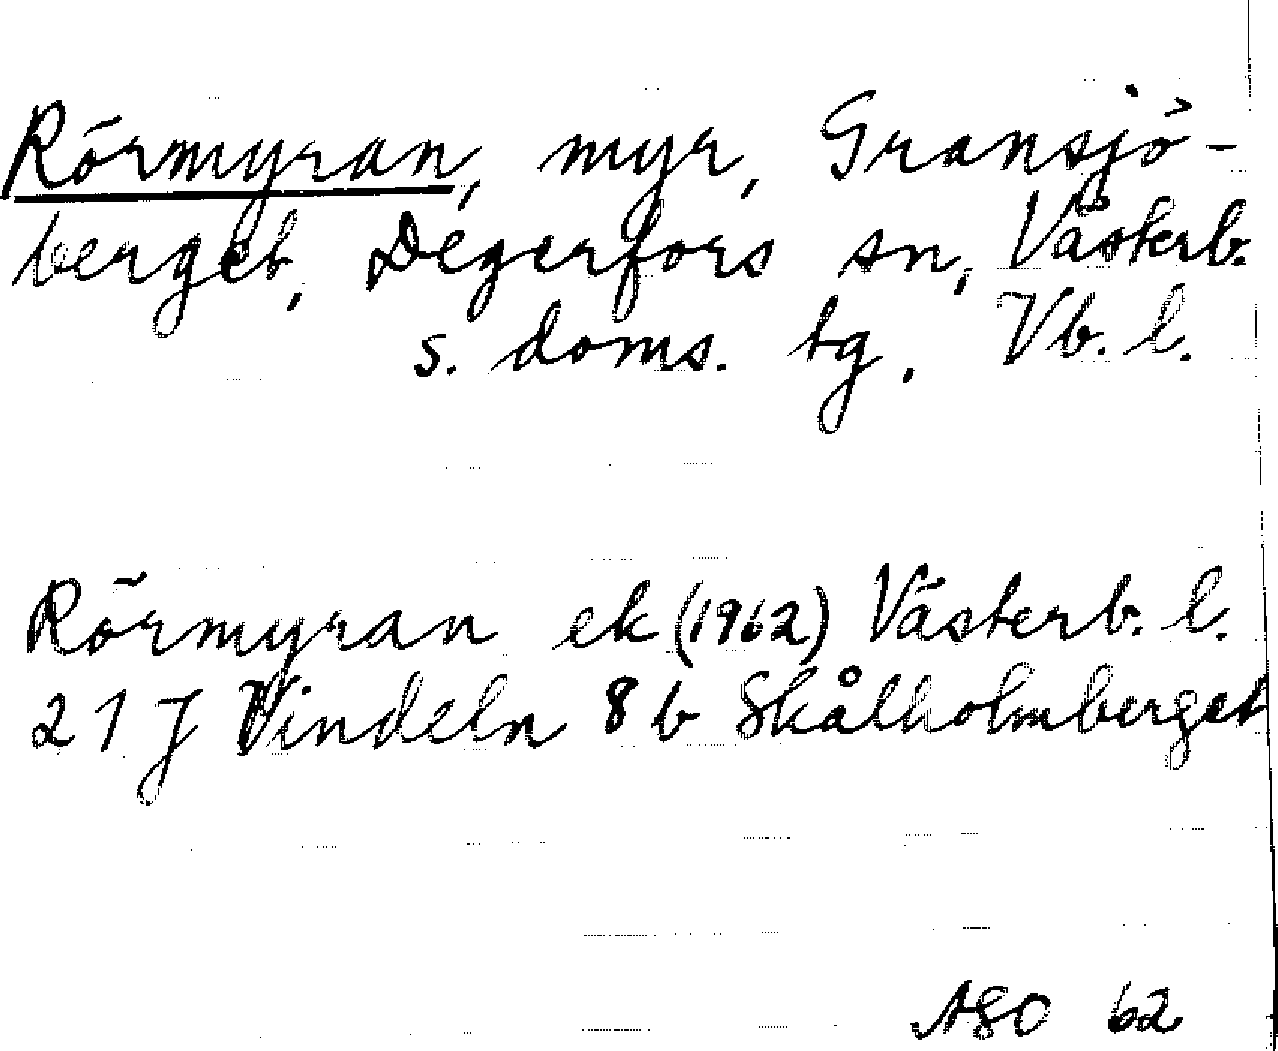 Rörmyran, myr, Gransjö-
berget, Degerfors sn, Västerb.
s. doms. tg. Vb. l.
Rörmyran ek (1962) Västerb. l.
21 J Vindeln 8 b Skålholmberget
ASO 62